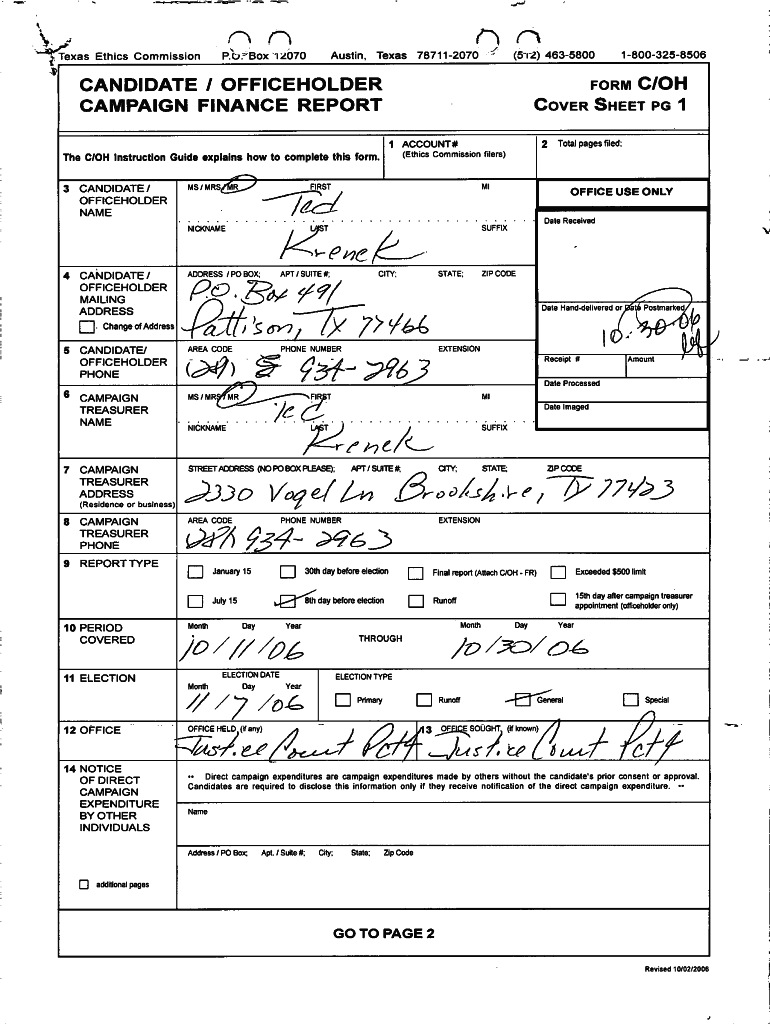 Texas Ethics Commission P.O. Box 12070 Austin, Texas 78711-2070 (512) 463-5800 1-800-325-8506
CANDIDATE / OFFICEHOLDER
CAMPAIGN FINANCE REPORT
FORM C/OH
COVER SHEET PG 1
The C/OH Instruction Guide explains how to complete this form.
1 ACCOUNT #
(Ethics Commission filers)
2 Total pages filed:
3 CANDIDATE / OFFICEHOLDER NAME
MS / MRS / MR FIRST MI
Ted
NICKNAME LAST SUFFIX
Krenek
OFFICE USE ONLY
Date Received
4 CANDIDATE / OFFICEHOLDER MAILING ADDRESS
Change of Address
ADDRESS / PO BOX; APT / SUITE #; CITY; STATE; ZIP CODE
P.O. Box 491
Pattison, TX 77466
Date Hand-delivered or Date Postmarked
10.30.06
5 CANDIDATE/ OFFICEHOLDER PHONE
AREA CODE PHONE NUMBER EXTENSION
(281) 934-2963
Receipt # Amount
Date Processed
Date Imaged
6 CAMPAIGN TREASURER NAME
MS / MRS / MR FIRST MI
Ted
NICKNAME LAST SUFFIX
Krenek
7 CAMPAIGN TREASURER ADDRESS
(Residence or business)
STREET ADDRESS (NO PO BOX PLEASE); APT / SUITE #; CITY; STATE; ZIP CODE
2330 Vogel Ln Brookshire, TX 77423
8 CAMPAIGN TREASURER PHONE
AREA CODE PHONE NUMBER EXTENSION
(281) 934-2963
9 REPORT TYPE
January 15 30th day before election Final report (Attach C/OH - FR) Exceeded $500 limit
July 15 8th day before election Runoff 15th day after campaign treasurer appointment (officeholder only)
10 PERIOD COVERED
Month Day Year THROUGH Month Day Year
10/11/06 10/30/06
11 ELECTION
ELECTION DATE
Month Day Year
11/7/06
ELECTION TYPE
Primary Runoff General Special
12 OFFICE
OFFICE HELD (if any)
Justice Court Pct 4
13 OFFICE SOUGHT (if known)
Justice Court Pct 4
14 NOTICE OF DIRECT CAMPAIGN EXPENDITURE BY OTHER INDIVIDUALS
additional pages
** Direct campaign expenditures are campaign expenditures made by others without the candidate's prior consent or approval.
Candidates are required to disclose this information only if they receive notification of the direct campaign expenditure. **
Name
Address / PO Box; Apt. / Suite #; City; State; Zip Code
GO TO PAGE 2
Revised 10/02/2006